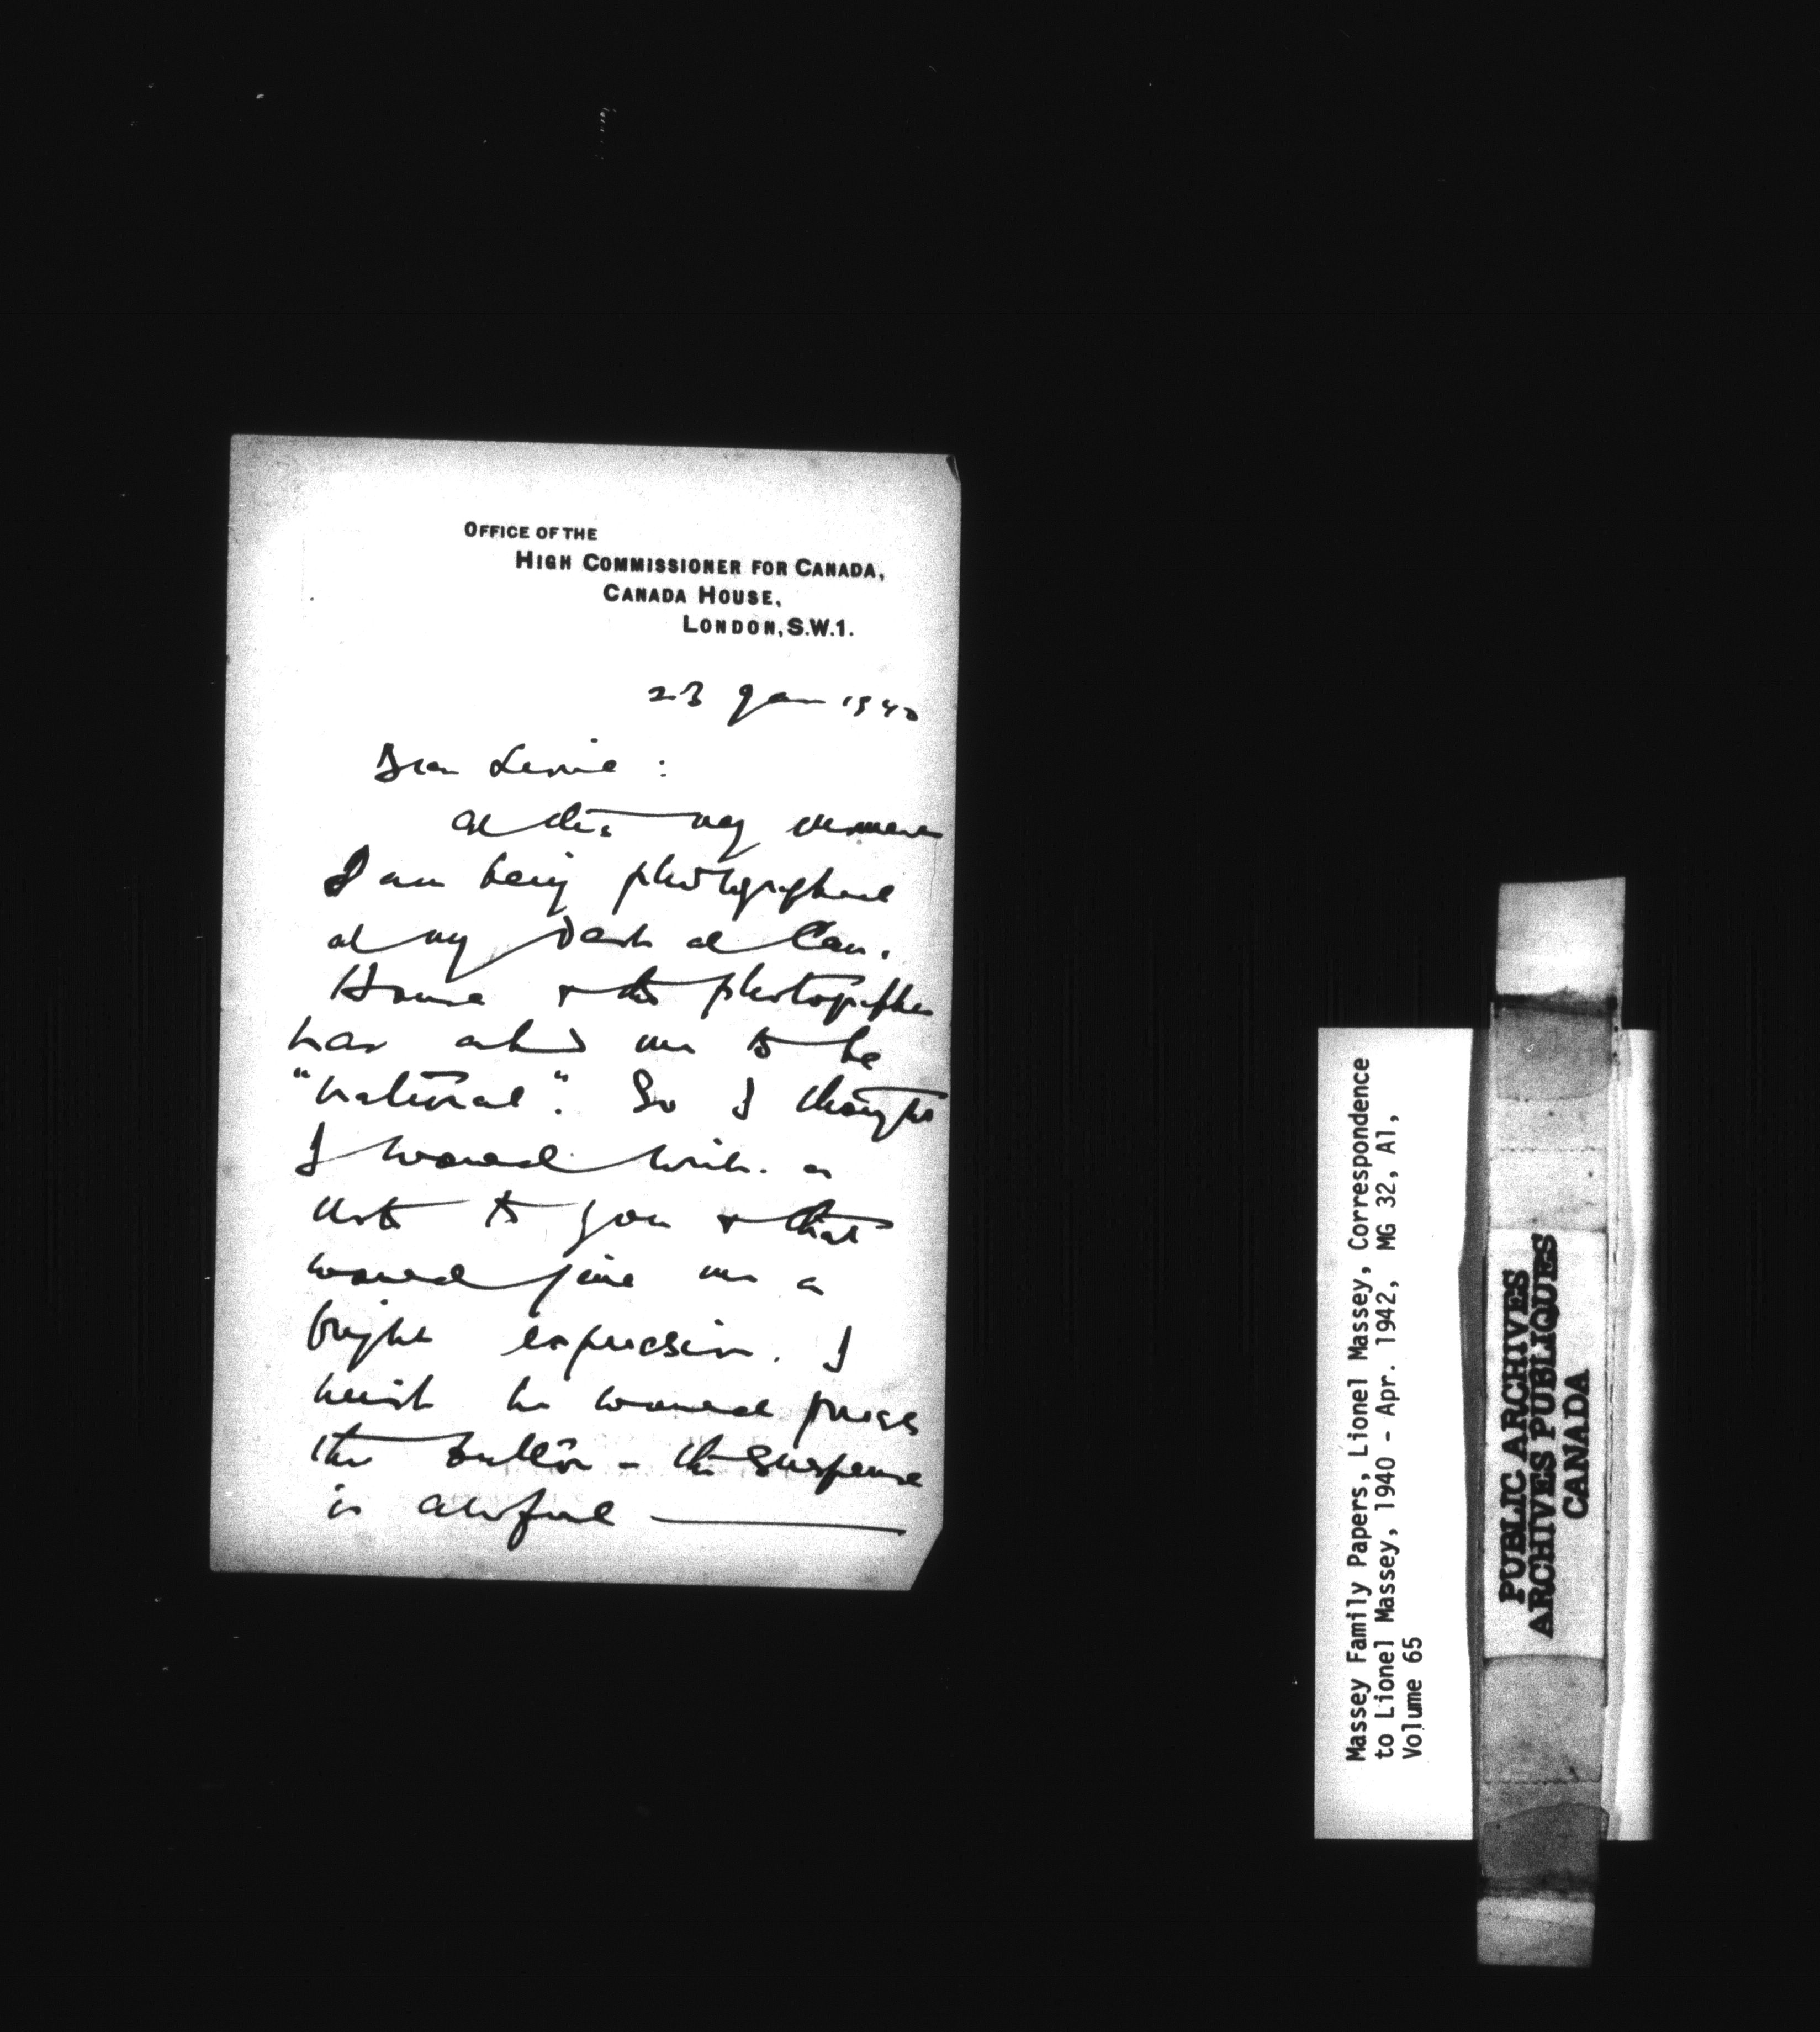 OFFICE OF THE
HIGH COMMISSIONER FOR CANADA,
CANADA HOUSE,
LONDON, S.W.1.
23 Jan 1940
Dear Lionel :
At this very moment
I am being photographed
at my desk at Can.
House & the photographer
has asked me to be
"natural". So I thought
I would write a
note to you & that
would give me a
bright expression. I
wish he would press
the button - the suspense
is awful
Massey Family Papers, Lionel Massey, Correspondence
to Lionel Massey, 1940 - Apr. 1942, MG 32, A1,
Volume 65
PUBLIC ARCHIVES
ARCHIVES PUBLIQUES
CANADA